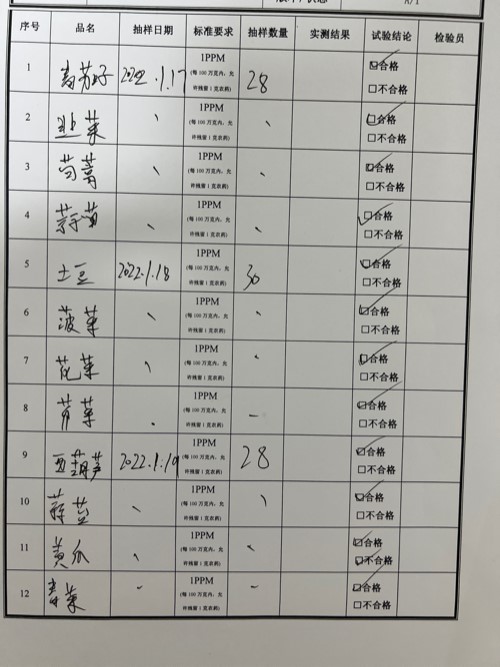 A/1
序号 品名 抽样日期 标准要求 抽样数量 实测结果 试验结论 检验员
1 2022.1.17 1PPM 28 合格
(每 100 万克内，允
许残留 1 克农药) 不合格
2 韭菜 1PPM 合格
(每 100 万克内，允
许残留 1 克农药) 不合格
3 1PPM 合格
(每 100 万克内，允
许残留 1 克农药) 不合格
4 1PPM 合格
(每 100 万克内，允
许残留 1 克农药) 不合格
5 土豆 2022.1.18 1PPM 30 合格
(每 100 万克内，允
许残留 1 克农药) 不合格
6 菠菜 1PPM 合格
(每 100 万克内，允
许残留 1 克农药) 不合格
7 花菜 1PPM 合格
(每 100 万克内，允
许残留 1 克农药) 不合格
8 芹菜 1PPM 合格
(每 100 万克内，允
许残留 1 克农药) 不合格
9 西葫芦 2022.1.19 1PPM 28 合格
(每 100 万克内，允
许残留 1 克农药) 不合格
10 1PPM 合格
(每 100 万克内，允
许残留 1 克农药) 不合格
11 黄瓜 1PPM 合格
(每 100 万克内，允
许残留 1 克农药) 不合格
12 青菜 1PPM 合格
(每 100 万克内，允
许残留 1 克农药) 不合格